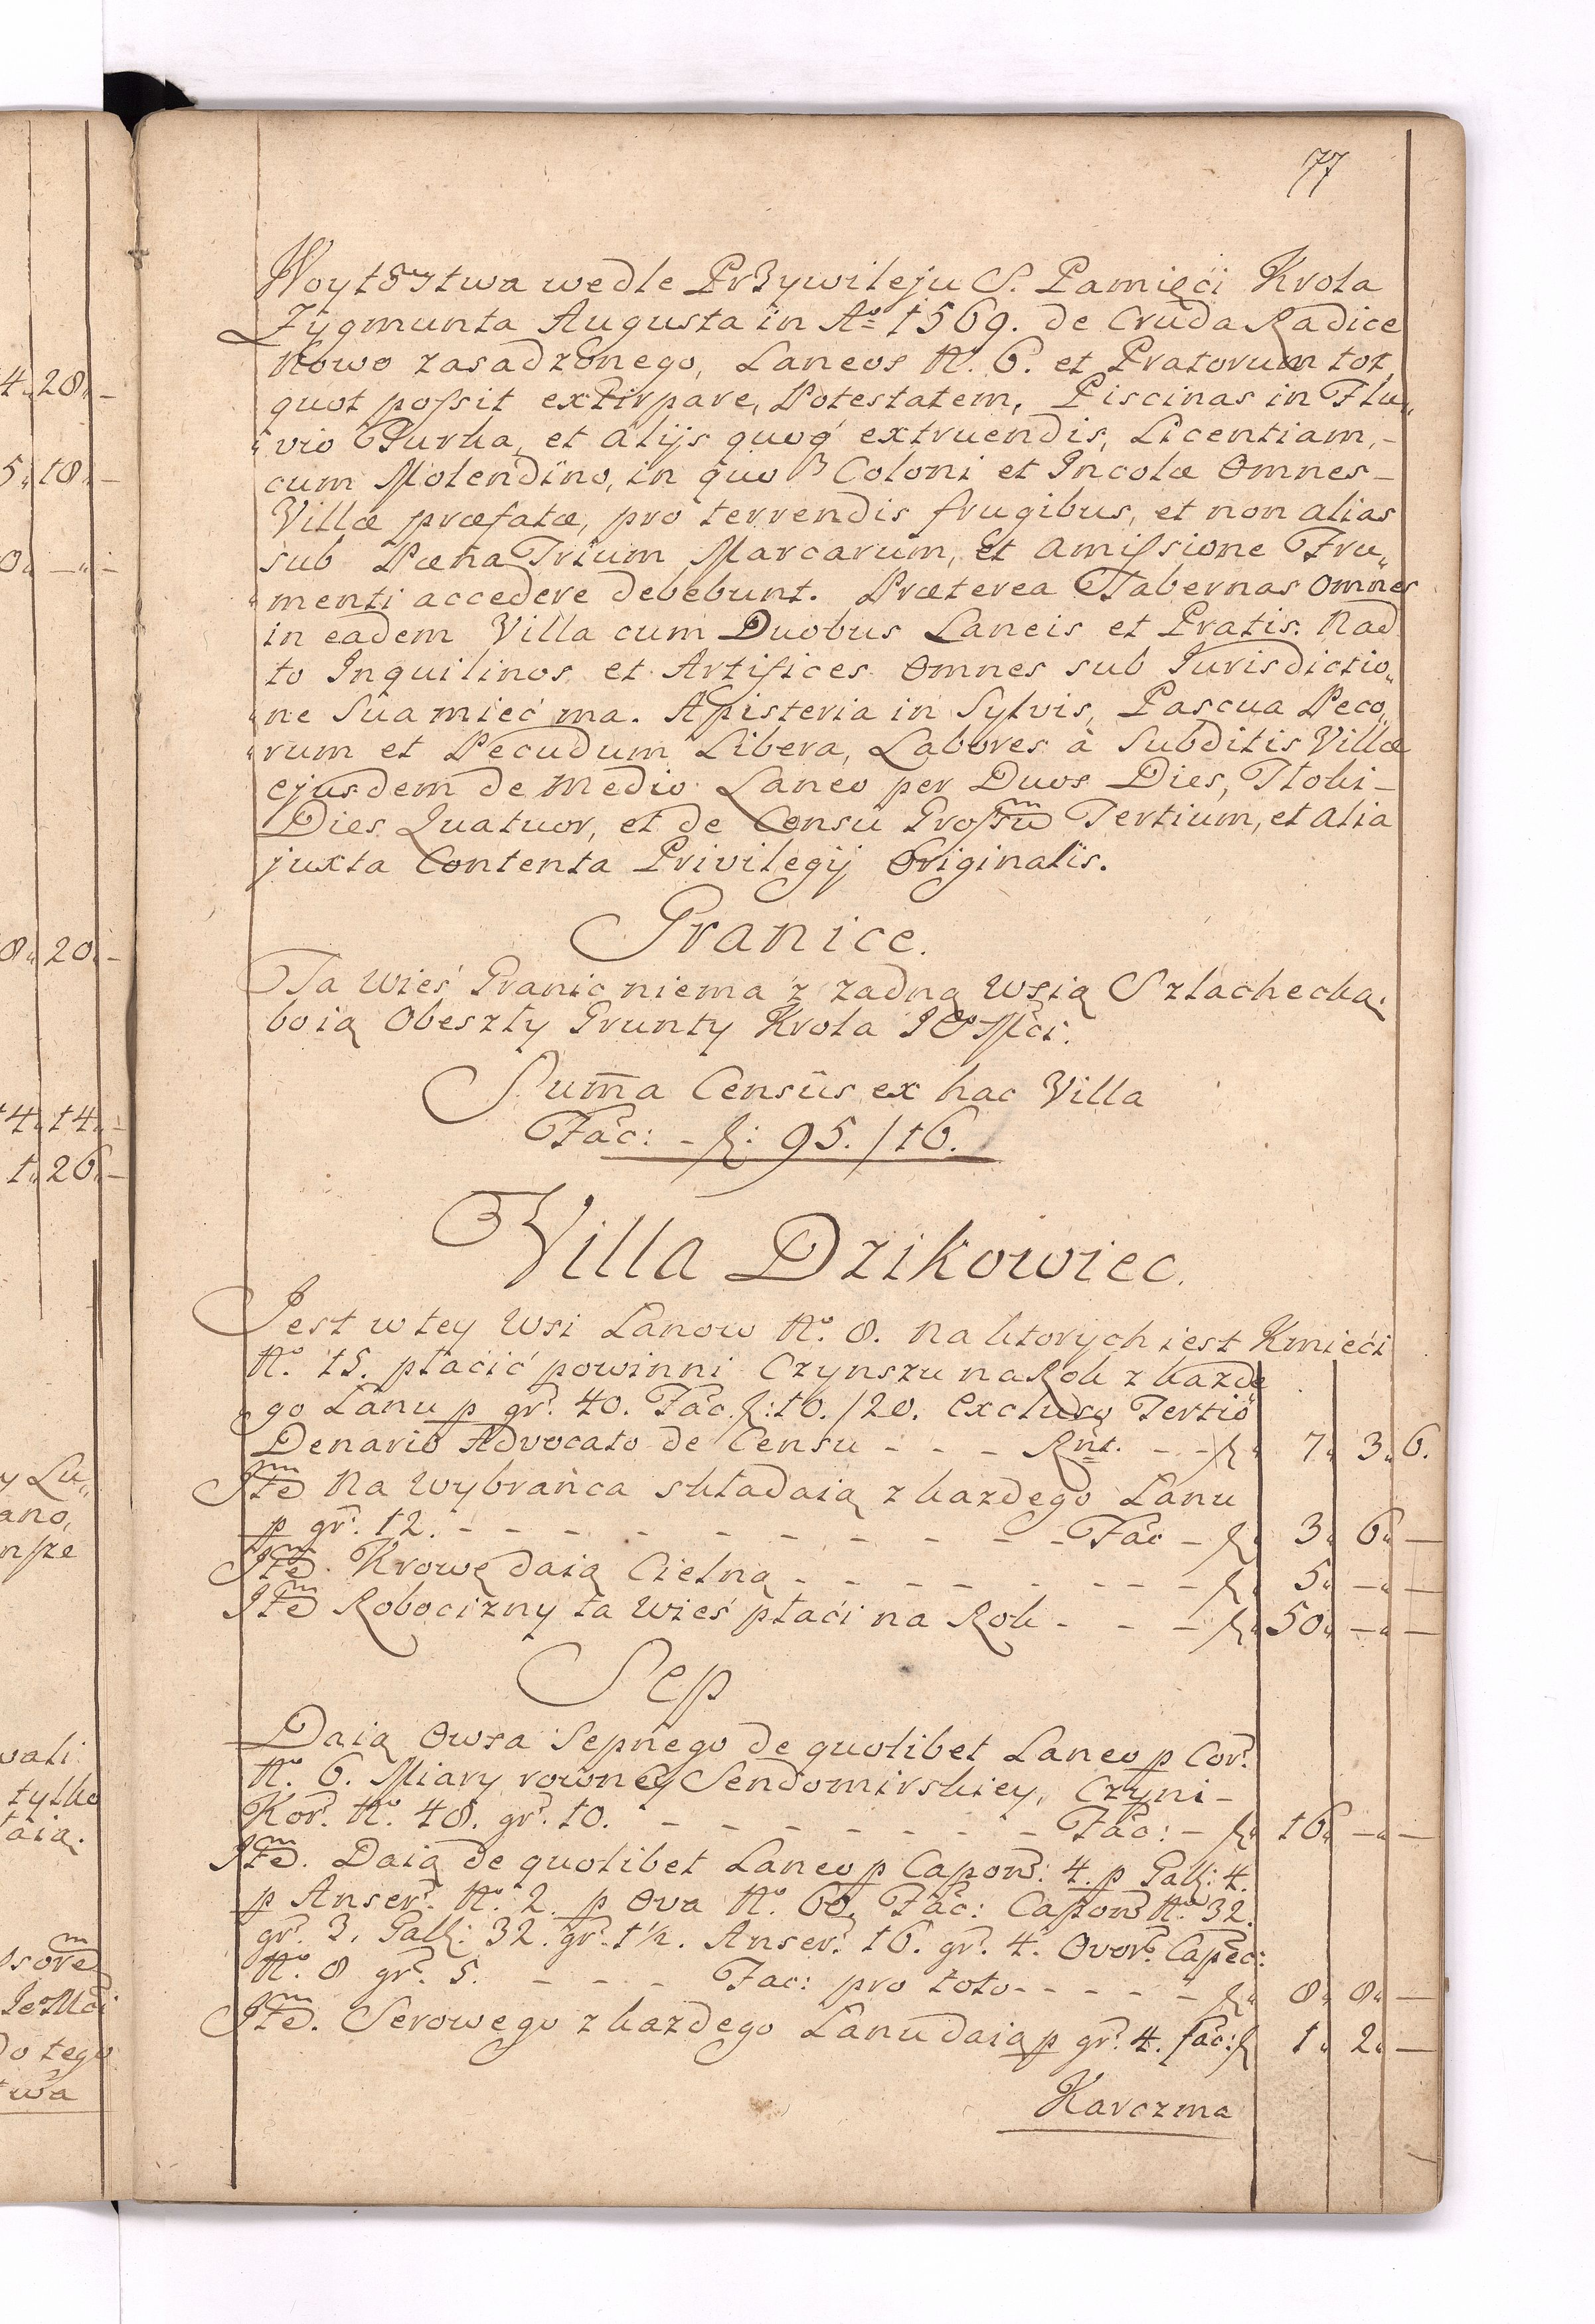 77
Woytostwa wedle Przywileju S. Pamięći Krola
Zygmunta Augusta in Aº 1569. de Cruda Radice
Nowo zasadzonego, Laneos Nº. 6. et Pratorum tot
quot possit extirpare, Potestatem, Piscinas in Flu„
„vio Burka, et alijs quoq́ extruendis, Licentiam,-
cum Molendino, in quo Coloni et Incolæ Omnes-
Villæ præfatæ, pro terrendis frugibus, et non alias
sub Pœna Trium Marcarum, et amissione Fru„
„menti accedere debebunt. Præterea Tabernas Omnes
in eadem Villa cum Duobus Laneis et Pratis. Nad
to Inquilinos et Artifices Omnes sub Jurisdictio„
„ne Sua mieć ma. Apisteria in Sylvis, Pascua Peco„
„rum et Pecudum Libera, Labores à Subditis Villæ
ejusdem de medio Laneo per Duos Dies, Tłoki-
Dies Quatuor, et de Censu Grossũ Tertium, et alia
juxta Contenta Privilegij Originalis.
Granice.
Ta wieś Granic niema z żadną wsią Szlachecką.
boią Obeszły Grunty Krola JoMći.
Sum̃a Censûs ex hac Villa
Fac: - f: 95./16.
Villa Dzikowiec.
Jest w tey Wsi Lanow Nº. 8. na ktorych iest Kmieći
Nº. 15. płaćić powinni Czynszu na Rok z każde
go Lanu p gr. 40. Fac. f: 10./20. Excluso Tertio
Denario Advocato de Censu - - - Rñt. - - f„ 7„ 3„ 6.
Itẽ Na wybrańca składaią z każdego Lanu
p gr. 12. - - - - - - - - - - - Fac - f„ 3„ 6„ —
Itẽ. Krowę daią Cielną - - - - - - - - f„ 5„ —„ —
Itẽ Robocizny ta wieś płaći na Rok - - - f„ 50„ —„ —
Sep
Daią Owsa Sepnego de quolibet Laneo p Cor.
Nº. 6. Miary rowney Sendomirskiey, Czyni-
Kor. Nº. 48. gr. 10. - - - - - - - - Fac: - f„ 16„ —„ —
Itẽ. Daią de quolibet Laneo p Capon: 4. p Gall: 4.
p Anser. Nº. 2. p Ova Nº. 60. Fac: Capon Nº. 32.
gr. 3. Gall: 32. gr. 1½. Anser. 16. gr. 4. Ovor. Capec:
Nº. 8 gr. 5. - - - - Fac: pro toto - - - - - f„ 8„ 8„ —
Itẽ. Serowego z każdego Lanu daią p gr. 4. fac: f 1„ 2„ —
Karczma